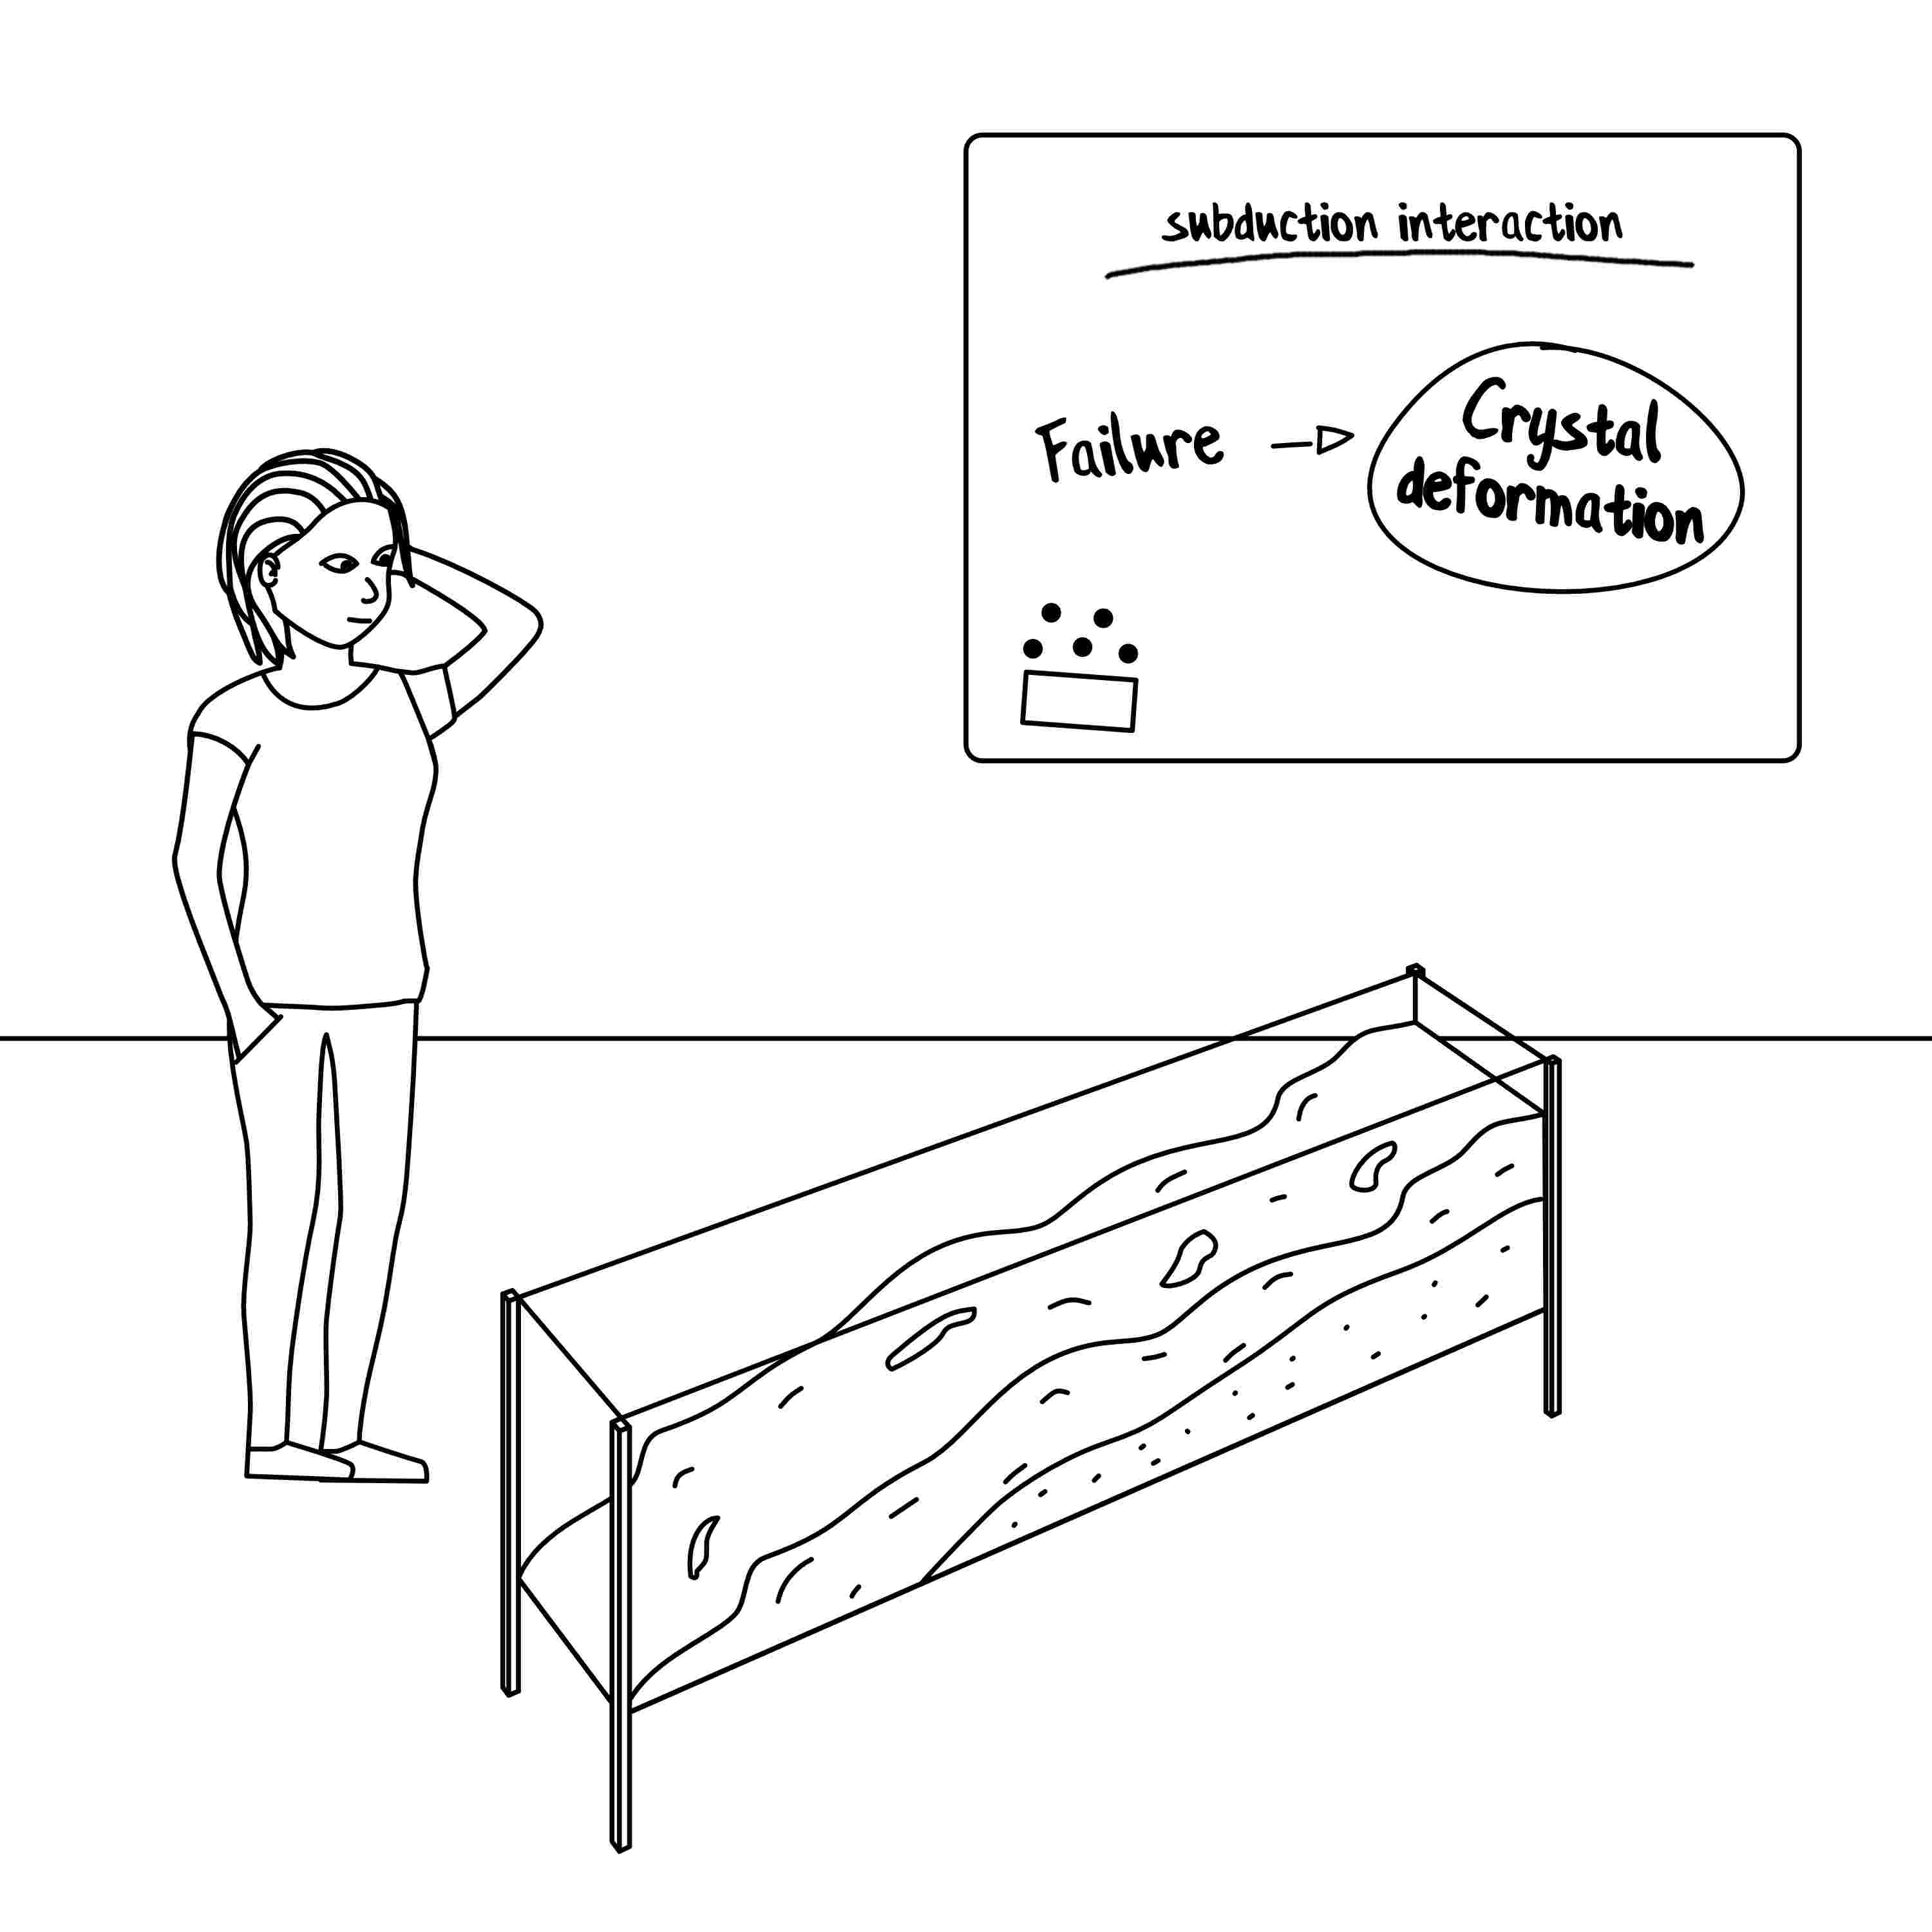 subduction interaction
Failure
Crystal
deformation